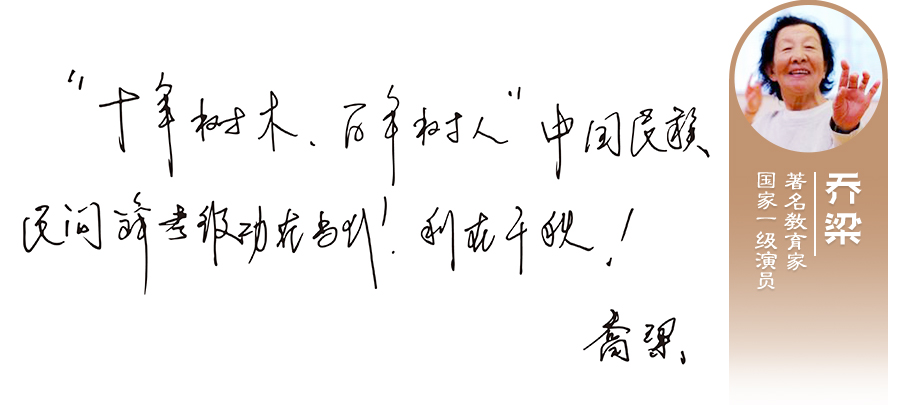 "十年树木、百年树人"中国民族、
民间舞考级功在当代！利在千秋！
喬梁、
乔梁
著名教育家
国家一级演员